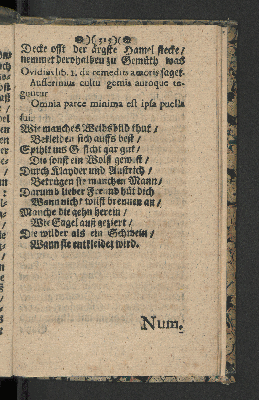 )( 315 )(
Decke offt der ärgste Hamel stecke/
nemmet derhalben zu Gemüth was
Ovidius lib. 1. de remedio amoris saget.
Auferimur cultu gemis auroque te-
guntur
Omnia parce minima est ipsa puella
sui.
Wie manches Weibsbild thut/
Bekleiden sich auffs best/
Spitzt ins G sicht gar gut/
Die sonst ein Wolff gewest/
Durch Klayder und Anstrich/
Betrügen sie manchen Mann/
Darumb lieber Freund hüt dich
Wann dichs wilst brennen an/
Manche die gehn herein/
Wie Engel auß geziert/
Die wilder als ein Schwein/
Wann sie entkleidet wird.
Num.